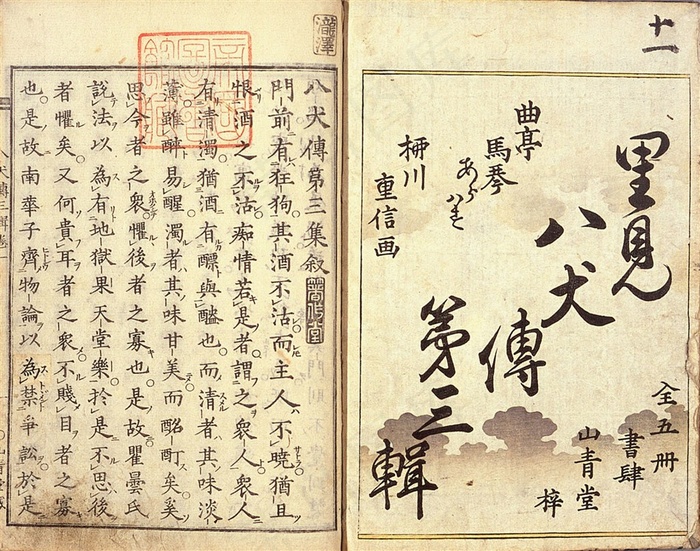 十一
里見
八犬傳
第三輯
全五冊
書肆
山青堂
梓
曲亭
馬琴
あらはす
栁川
重信画
瀧澤
八犬傳第三集叙
門前有狂狗其酒不沽而主人不曉猶且
恨酒之不沽痴情若是者謂之衆人衆人
有清濁猶酒有醥與醠也而清者其味淡
薄雖醉易醒濁者其味甘美而酩酊矣奚
思今者之衆懼後者之寡也是故瞿曇氏
說法以為有地獄果天堂樂於是不思後
者懼矣又何貴耳者之衆不賤目者之寡
也是故南華子齊物論以為禁爭訟於是
八犬傳三輯卷一